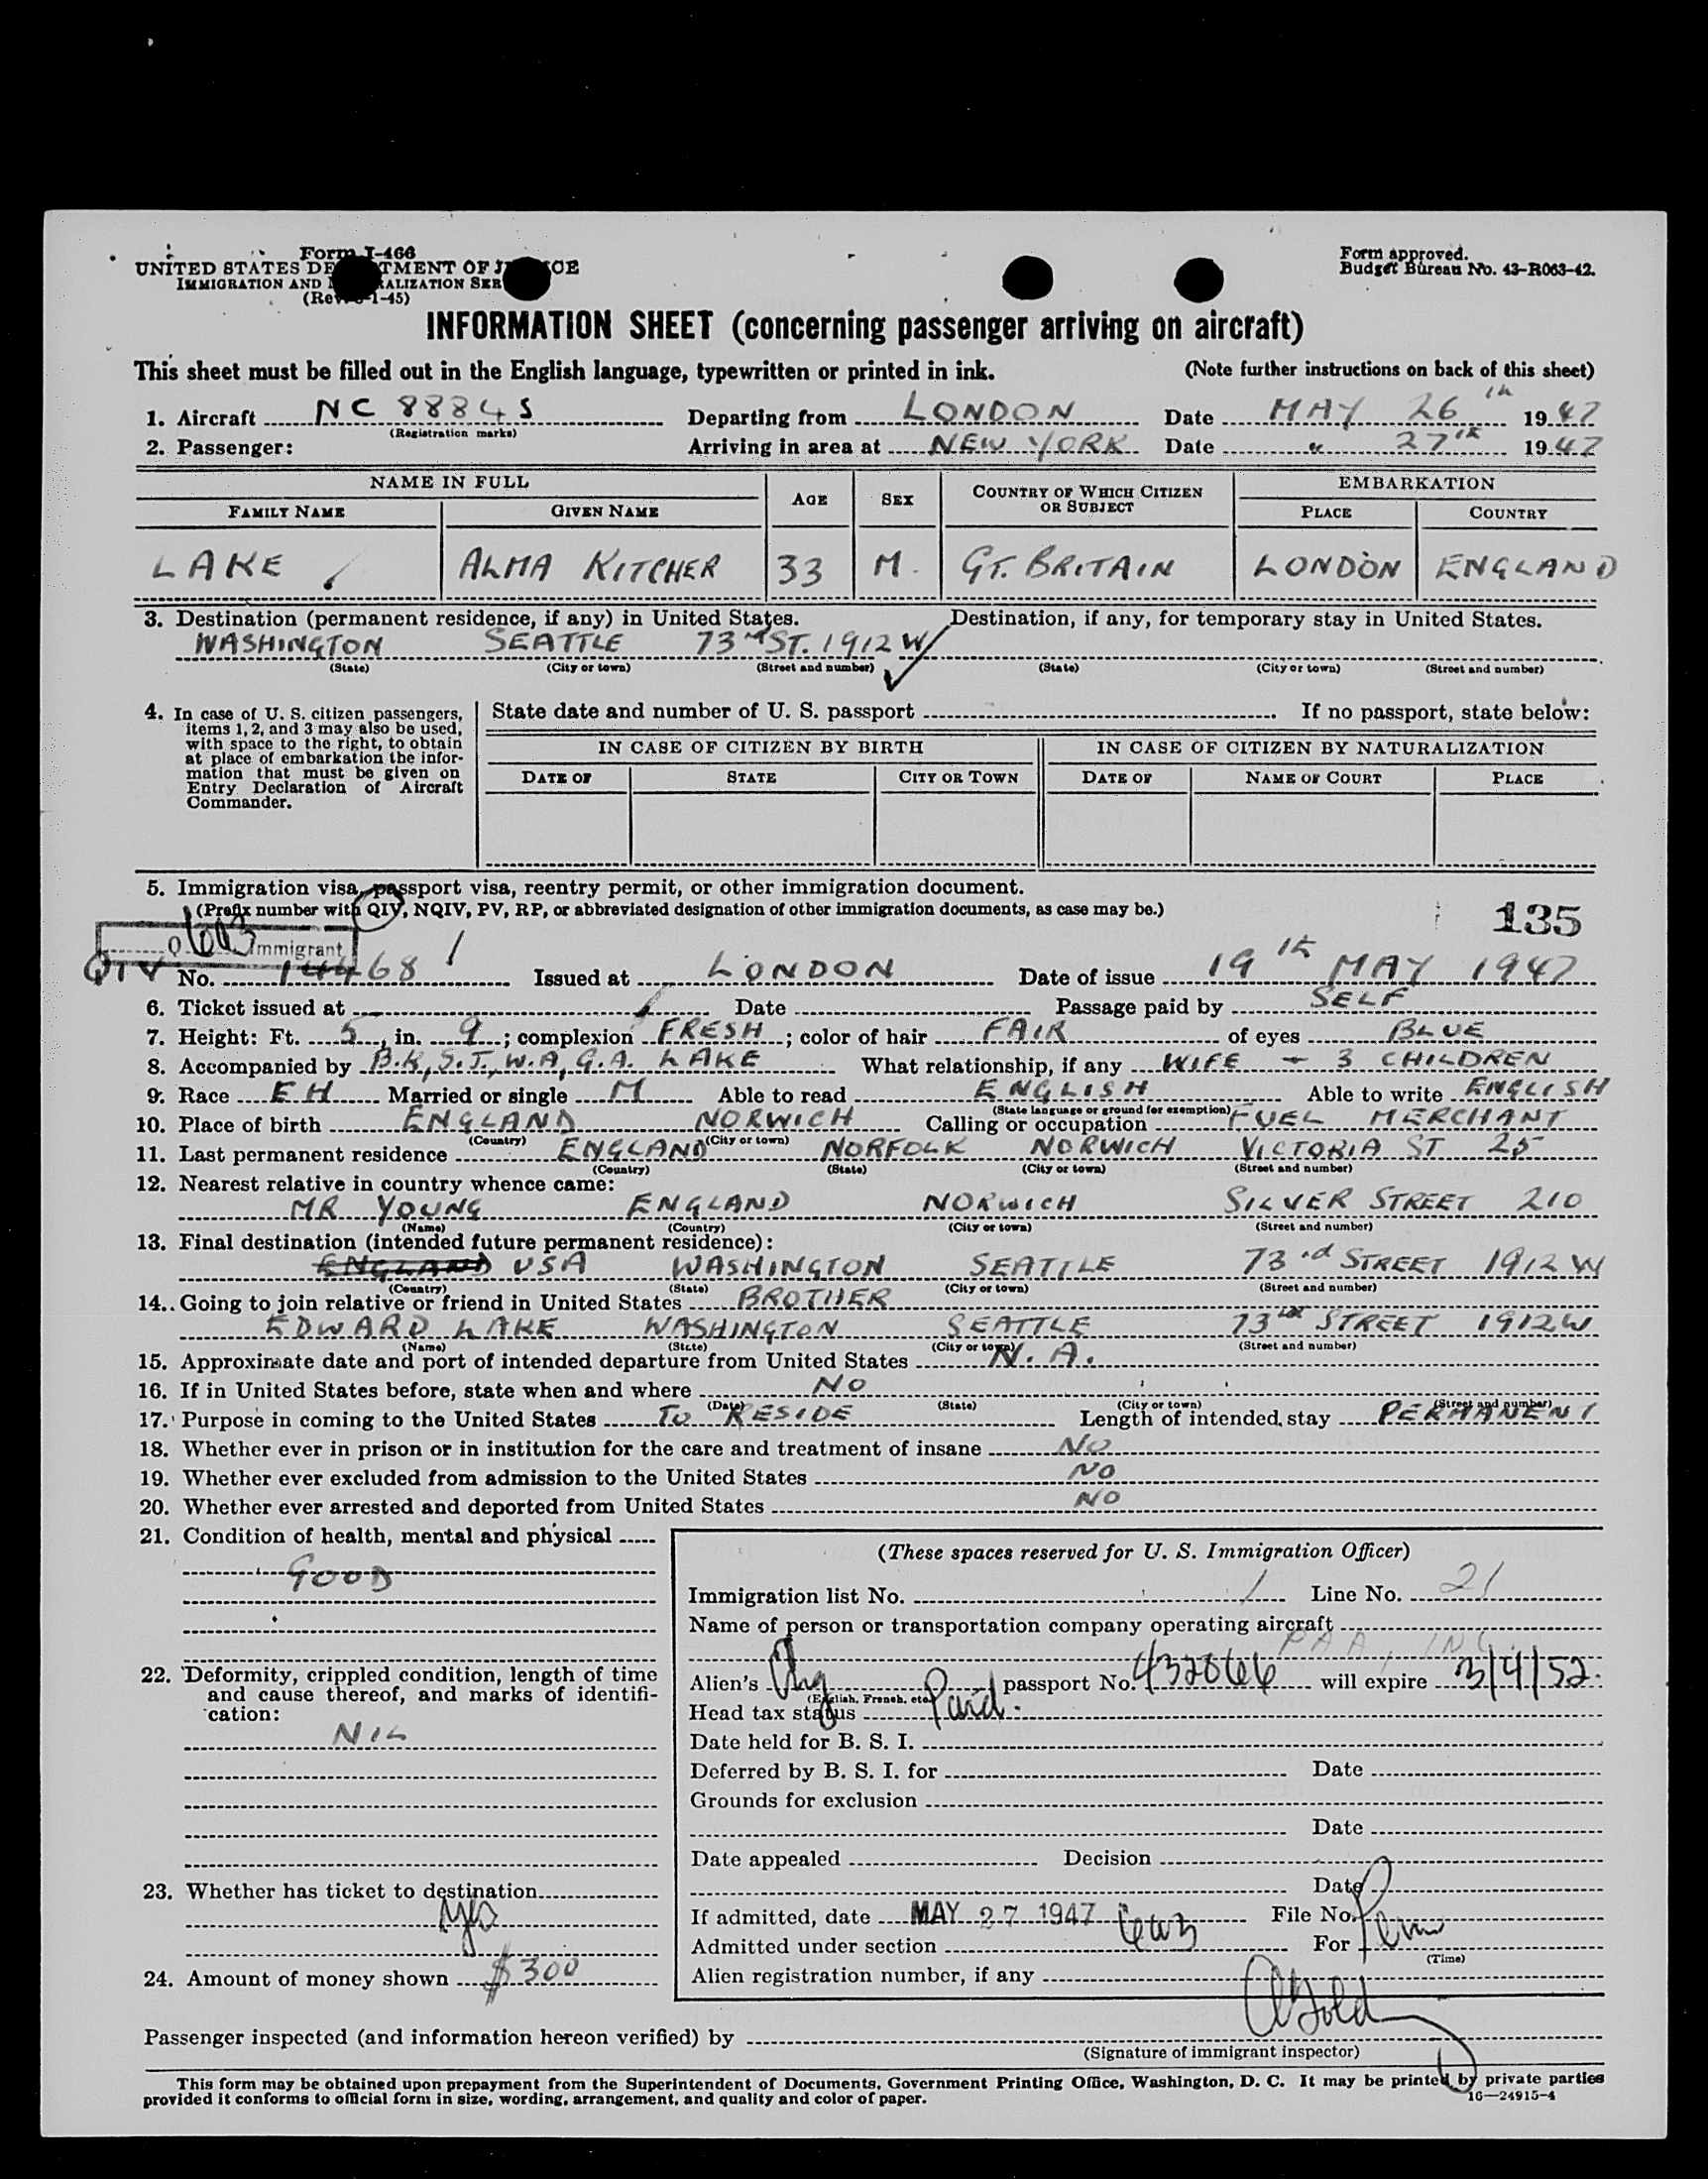 Form I-466
UNITED STATES DEPARTMENT OF JUSTICE
IMMIGRATION AND NATURALIZATION SER
(Rev. 1-45)
Form approved.
Budget Bureau No. 43-R063-42.
INFORMATION SHEET (concerning passenger arriving on aircraft)
This sheet must be filled out in the English language, typewritten or printed in ink. (Note further instructions on back of this sheet)
1. Aircraft NC 88845 Departing from LONDON Date MAY 26th 1947
(Registration marks)
2. Passenger: Arriving in area at NEW YORK Date " 27th 1947
NAME IN FULL AGE SEX COUNTRY OF WHICH CITIZEN OR SUBJECT EMBARKATION
FAMILY NAME GIVEN NAME PLACE COUNTRY
LAKE ALMA KITCHER 33 M. GT. BRITAIN LONDON ENGLAND
3. Destination (permanent residence, if any) in United States. Destination, if any, for temporary stay in United States.
WASHINGTON SEATTLE 73rd ST. 1912 W
(State) (City or town) (Street and number) (State) (City or town) (Street and number)
4. In case of U. S. citizen passengers, items 1, 2, and 3 may also be used, with space to the right, to obtain at place of embarkation the information that must be given on Entry Declaration of Aircraft Commander.
State date and number of U. S. passport If no passport, state below:
IN CASE OF CITIZEN BY BIRTH IN CASE OF CITIZEN BY NATURALIZATION
DATE OF STATE CITY OR TOWN DATE OF NAME OF COURT PLACE
5. Immigration visa, passport visa, reentry permit, or other immigration document.
(Prefix number with QIV, NQIV, PV, RP, or abbreviated designation of other immigration documents, as case may be.)
135
Q 603 Immigrant
QIV No. 14468 Issued at LONDON Date of issue 19th MAY 1947
6. Ticket issued at Date Passage paid by SELF
7. Height: Ft. 5, in. 9; complexion FRESH; color of hair FAIR of eyes BLUE
8. Accompanied by B.K., S.J., W.A., G.A. LAKE What relationship, if any WIFE - 3 CHILDREN
9. Race EH Married or single M Able to read ENGLISH Able to write ENGLISH
(State language or ground for exemption)
10. Place of birth ENGLAND NORWICH Calling or occupation FUEL MERCHANT
(Country) (City or town)
11. Last permanent residence ENGLAND NORFOLK NORWICH VICTORIA ST 25
(Country) (State) (City or town) (Street and number)
12. Nearest relative in country whence came:
MR YOUNG ENGLAND NORWICH SILVER STREET 210
(Name) (Country) (City or town) (Street and number)
13. Final destination (intended future permanent residence):
ENGLAND USA WASHINGTON SEATTLE 73rd STREET 1912 W
(Country) (State) (City or town) (Street and number)
14. Going to join relative or friend in United States BROTHER
EDWARD LAKE WASHINGTON SEATTLE 73 STREET 1912W
(Name) (State) (City or town) (Street and number)
15. Approximate date and port of intended departure from United States N. A.
16. If in United States before, state when and where NO
(Date) (State) (City or town) (Street and number)
17. Purpose in coming to the United States TO RESIDE Length of intended stay PERMANENT
18. Whether ever in prison or in institution for the care and treatment of insane NO
19. Whether ever excluded from admission to the United States NO
20. Whether ever arrested and deported from United States NO
21. Condition of health, mental and physical
GOOD
22. Deformity, crippled condition, length of time and cause thereof, and marks of identification:
NIL
23. Whether has ticket to destination
yes
24. Amount of money shown $300
(These spaces reserved for U. S. Immigration Officer)
Immigration list No. 1 Line No. 21
Name of person or transportation company operating aircraft
PAA, INC.
Alien's passport No. 432066 will expire 3/4/52.
(English, French, etc.)
Head tax status Paid.
Date held for B. S. I.
Deferred by B. S. I. for Date
Grounds for exclusion
Date
Date appealed Decision
Date
If admitted, date MAY 27 1947 File No.
Admitted under section For Perm
(Time)
Alien registration number, if any
Passenger inspected (and information hereon verified) by
(Signature of immigrant inspector)
This form may be obtained upon prepayment from the Superintendent of Documents, Government Printing Office, Washington, D. C. It may be printed by private parties
provided it conforms to official form in size, wording, arrangement, and quality and color of paper.
16—24915-4